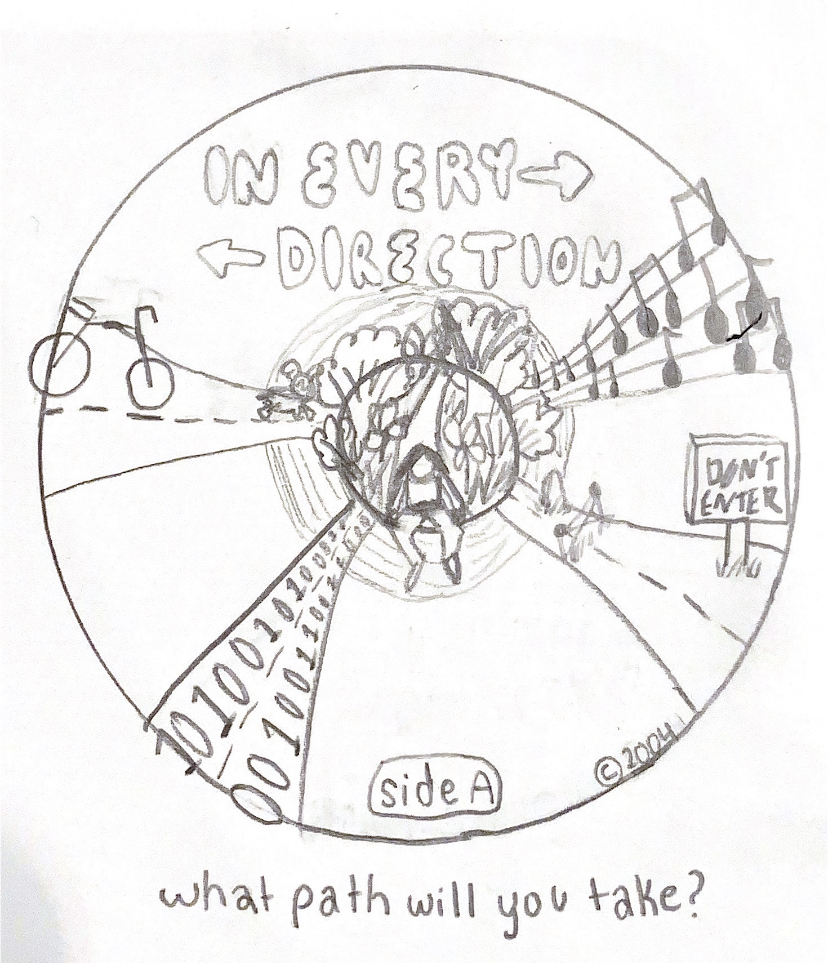 IN EVERY →
← DIRECTION
DON'T
ENTER
10100101000
00100110
side A
© 2004
what path will you take?